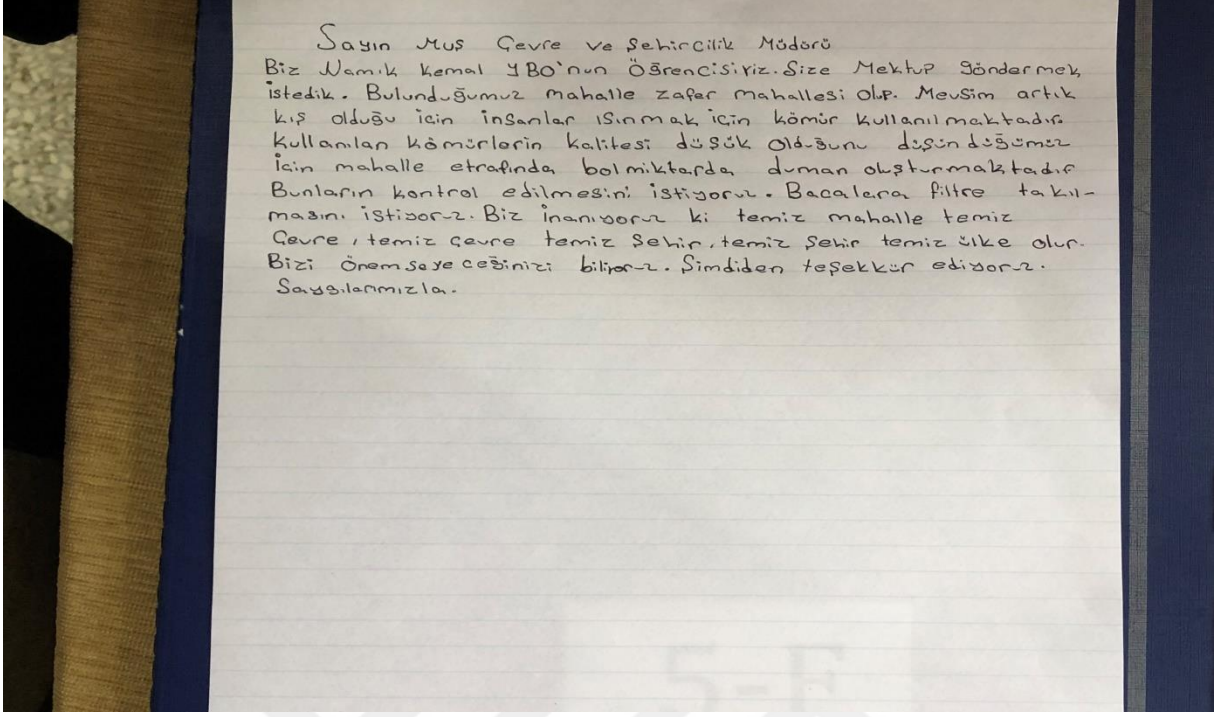 Sayın Muş Çevre ve Şehircilik Müdürü
Biz Namık Kemal YBO'nun Öğrencisiyiz. Size Mektup göndermek
istedik. Bulunduğumuz mahalle zafer mahallesi olup. Mevsim artık
kış olduğu için insanlar ısınmak için kömür kullanılmaktadır
kullanılan kömürlerin kalitesi düşük olduğunu düşündüğümüz
için mahalle etrafında bol miktarda duman oluşturmaktadır
Bunların kontrol edilmesini istiyoruz. Bacalara filtre takıl-
masını istiyoruz. Biz inanıyoruz ki temiz mahalle temiz
Çevre, temiz çevre temiz Şehir, temiz Şehir temiz ülke olur.
Bizi önemseyeceğinizi biliyoruz. Şimdiden teşekkür ediyoruz.
Saygılarımızla.
5-F